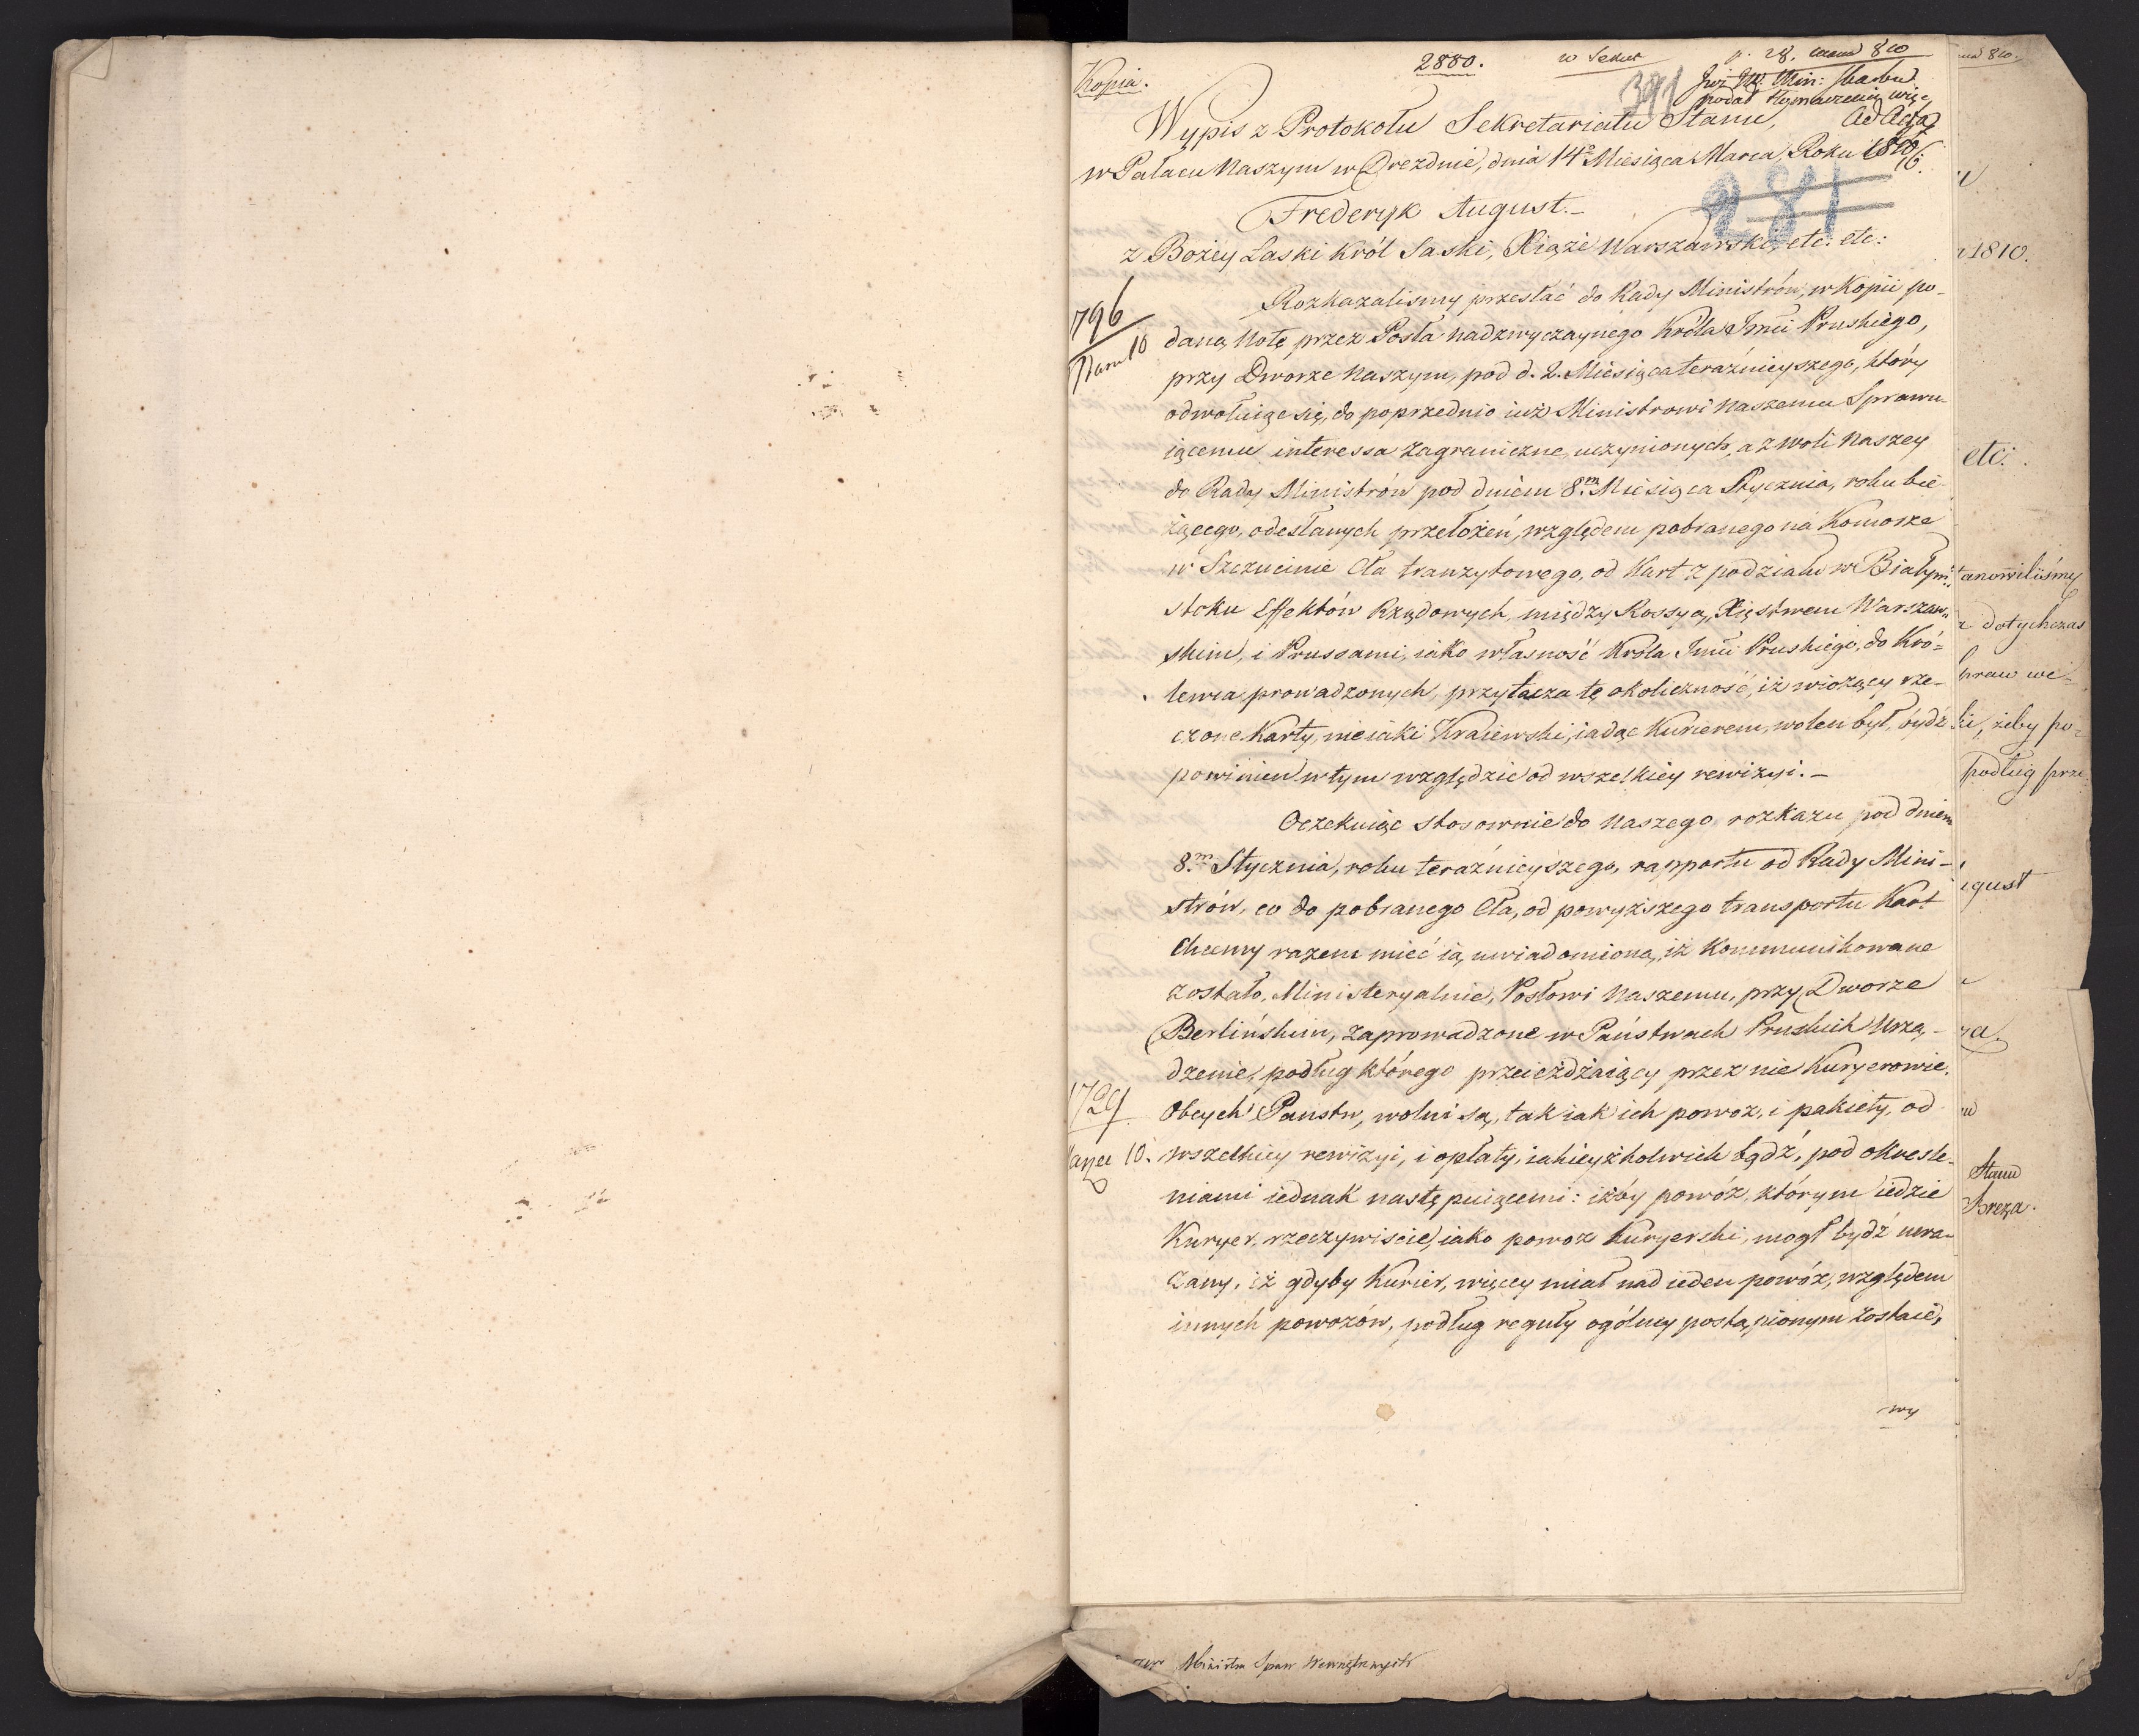 Kopia.
2880.
w Sekret
p. 28. 810
391
Już JW. Min: Skarbu
podał tłomaczenie, więc
Ad Acta
Wypis z Protokołu Sekretariatu Stanu,
w Pałacu Naszym w Dreznie, dnia 14º Miesiąca Marca, Roku 1810.
281
Fryderyk August.
z Bożey Łaski Król Saski, Xiąże Warszawski, etc: etc:
796
10
Rozkazaliśmy przesłać do Rady Ministrów, w Kopii po-
daną Notę przez Posła nadzwyczaynego Króla Jmci Pruskiego,
przy Dworze Naszym, pod d. 2. Miesiąca teraźnieyszego, który
odwołuiąc się, do poprzednio iuż Ministrowi Naszemu Sprawu-
iącemu interessa zagraniczne, uczynionych, a z woli Naszey
do Rady Ministrów pod dniem 8m. Miesiąca Stycznia, roku bie-
żącego, odesłanych przełożeń, względem pobranego na Komorze
w Szczucinie Cła tranzytowego, od Kart z podziału w Białym-
stoku Effektów Rządowych, między Rossyą, Xięstwem Warszaw-
skim, i Prussami, iako własność Króla Jmci Pruskiego, do Kró-
lewca prowadzonych, przytacza tę okoliczność, iż wiozący rze-
czone Karty, nieiaki Kraiewski, iadąc Kurierem, wolen był, bydź
powinien w tym względzie od wszelkiey rewizyi.
Oczekuiąc stosownie do Naszego rozkazu pod dniem
8m. Stycznia, roku teraźnieyszego, rapportu od Rady Mini-
strów, co do pobranego Cła, od powyższego transportu Kart
Chcemy razem mieć ią uwiadomioną, iż Kommunikowane
zostało, Ministeryalnie, Posłowi Naszemu, przy Dworze
Berlińskim, zaprowadzone w Państwach Pruskich Urzą-
dzenie, podług którego przeieżdżaiący przez nie Kuryerowie
1729
10.
Obcych Państw, wolni są, tak iak ich powoz, i pakiety, od
wszelkiey rewizyi, i opłaty, iakieyżkolwiek bądź, pod określe-
niami iednak następuiącemi: iżby powóz, którym iedzie
Kuryer, rzeczywiście, iako powoz Kuryerski, mogł bydź uwa-
żany, iż gdyby Kurier, więcey miał nad ieden powóz, względem
innych powozów, podług reguły ogólney postąpionym zostaie,
wy
810.
1810.
etc.
tanowiliśmy
dotychczas
praw we-
żeby po-
podług prze
gust
Stanu
Breza.
Ministra Spraw Wewnętrznych